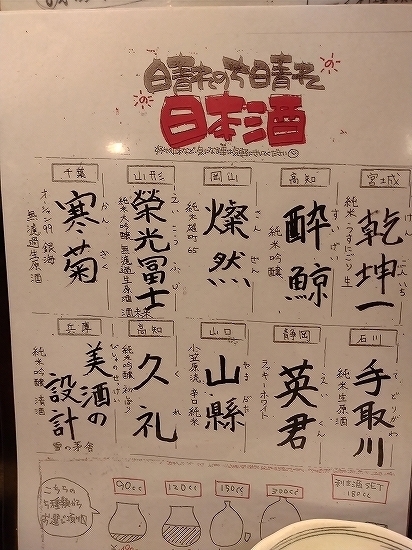 晴れのち晴れ
の
日本酒
宮城
乾坤一
けんこんいち
純米・うすにごり生
高知
酔鯨
すいげい
純米吟醸
岡山
燦然
さんぜん
純米雄町65
山形
榮光冨士
えいこうふじ
純米大吟醸無濾過生原酒
千葉
寒菊
かんぎく
オーシャン99 銀海
無濾過生原酒
石川
手取川
てどりがわ
純米生原酒
静岡
英君
えいくん
ラッキーホワイト
山口
山縣
やまがた
小笠原流 辛口純米
高知
久礼
くれ
純米吟醸
兵庫
美酒の設計
びしゅのせっけい
純米吟醸 清酒
雪の茅舎
こちらの
5種類から
お選び頂けます
90cc
120cc
150cc
300cc
利き酒SET
180cc